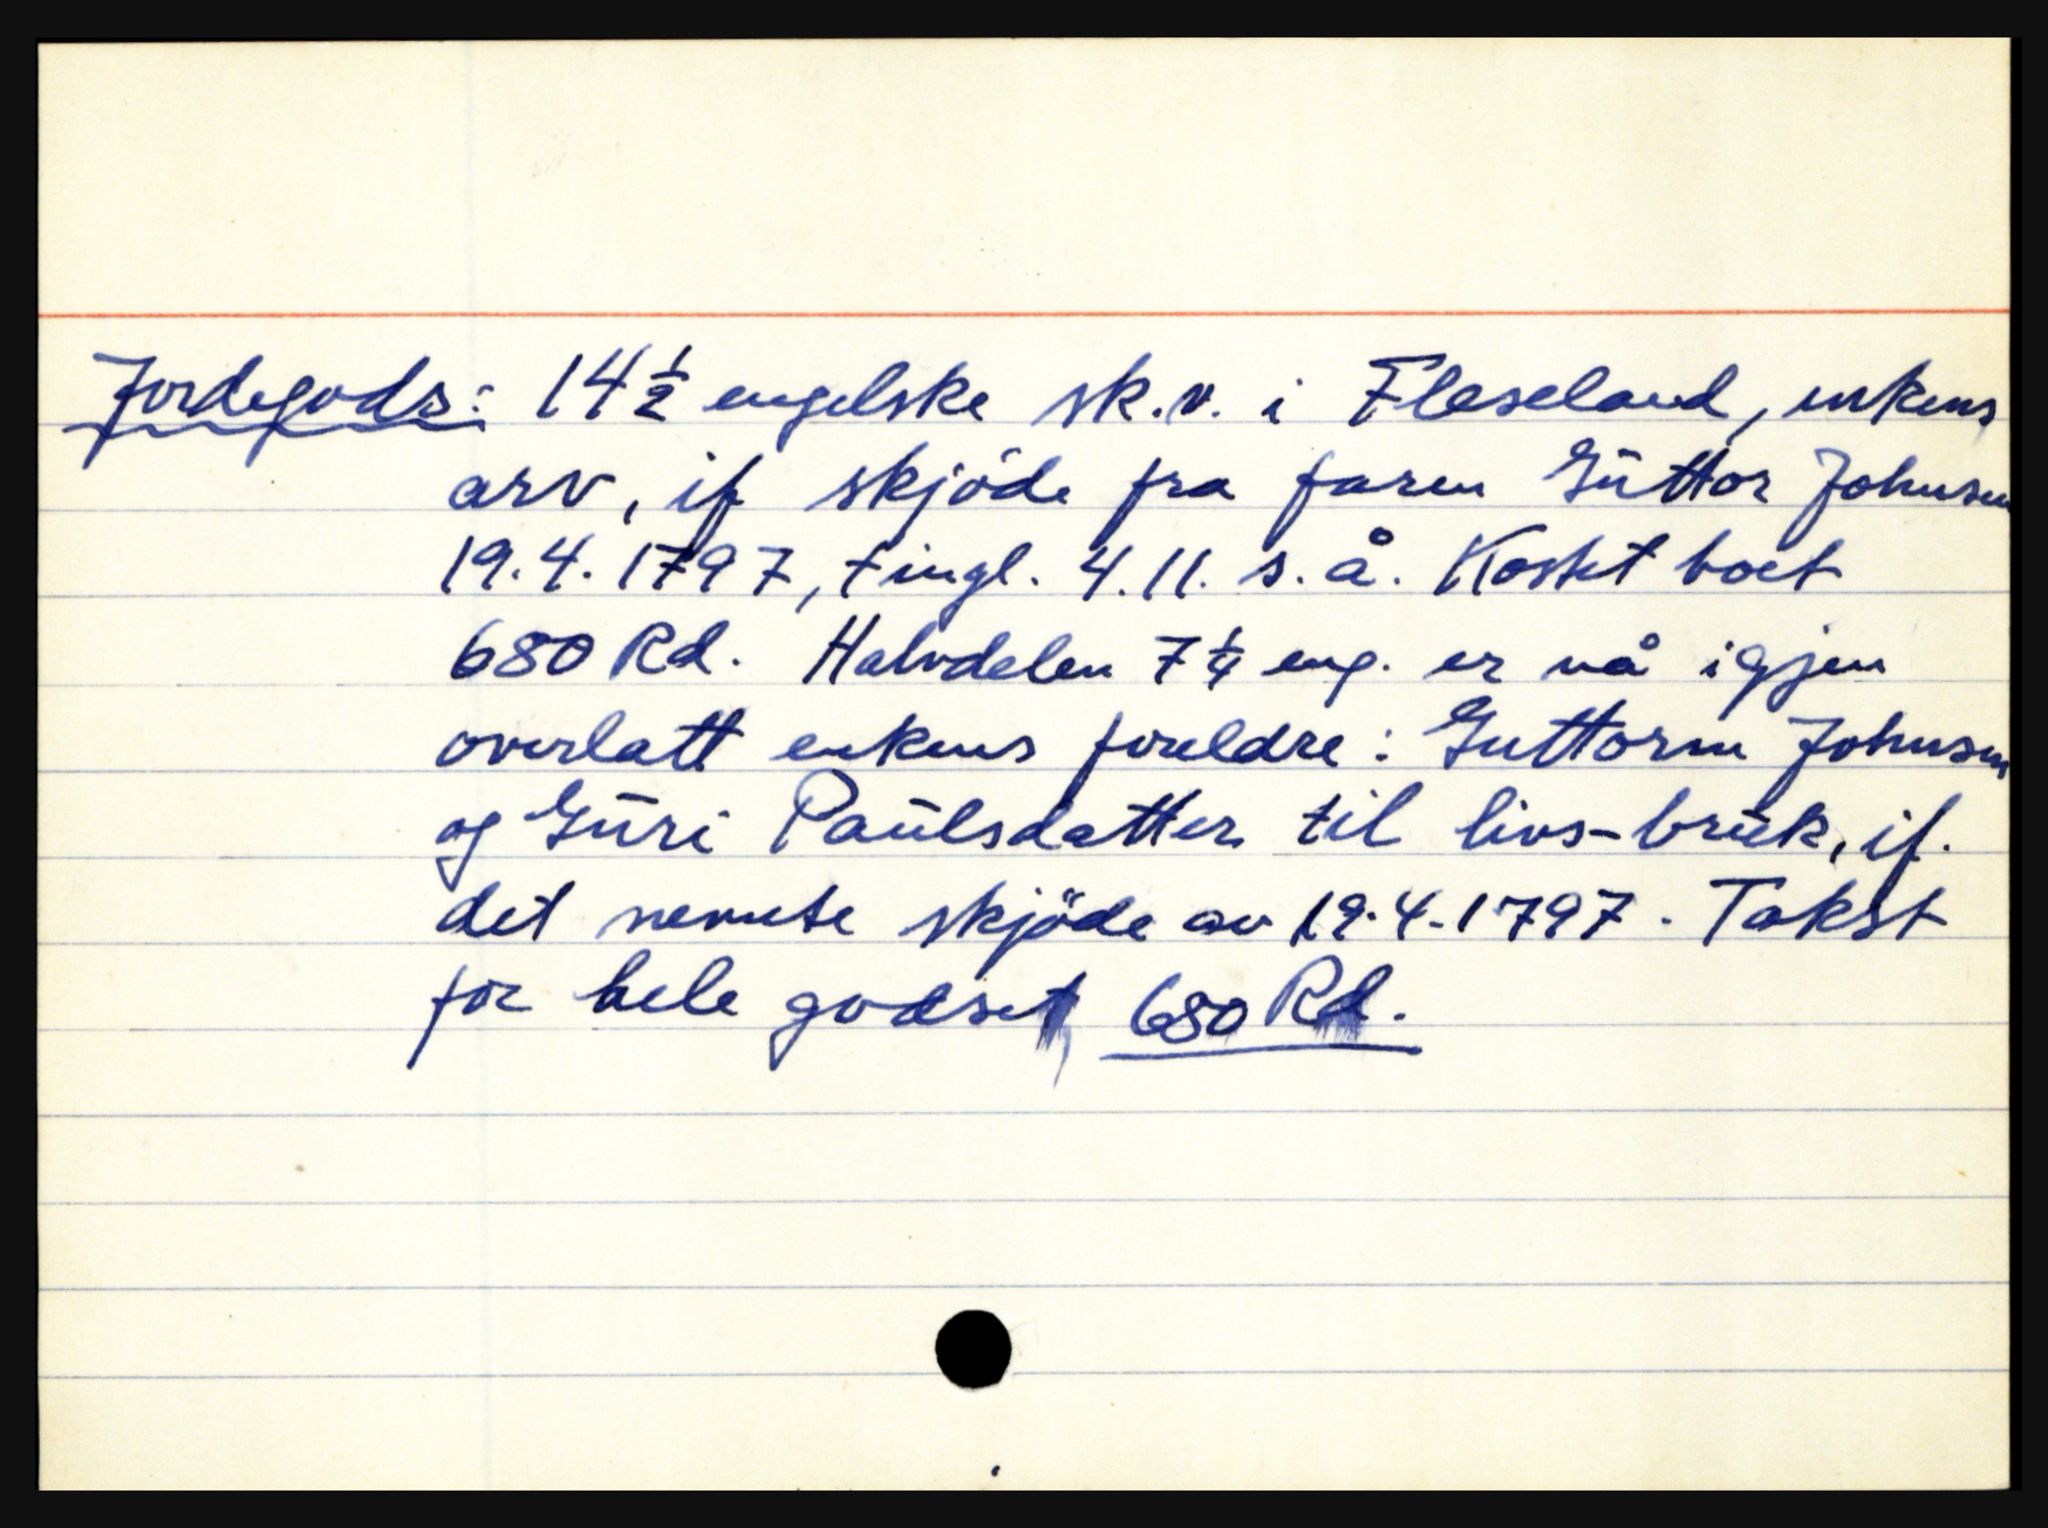 Jordegods: 14 ½ engelske sk.v. i Fleseland, enkens
arv, if skjöde fra faren Guttor Johnsen
19.4.1797, tingl. 4.11. s.å. Kostet boet
680 Rd. Halvdelen 7 ¼ eng. er nå igjen
overlatt enkens foreldre: Guttorm Johnsen
og Guri Paulsdatter til livs-bruk, if.
det nevnte skjöde av 19.4.1797. Takst
for hele godset 680 Rd.